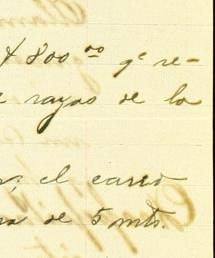 $800.00 qe re-
rayas de la
el carro
de 5 mts.